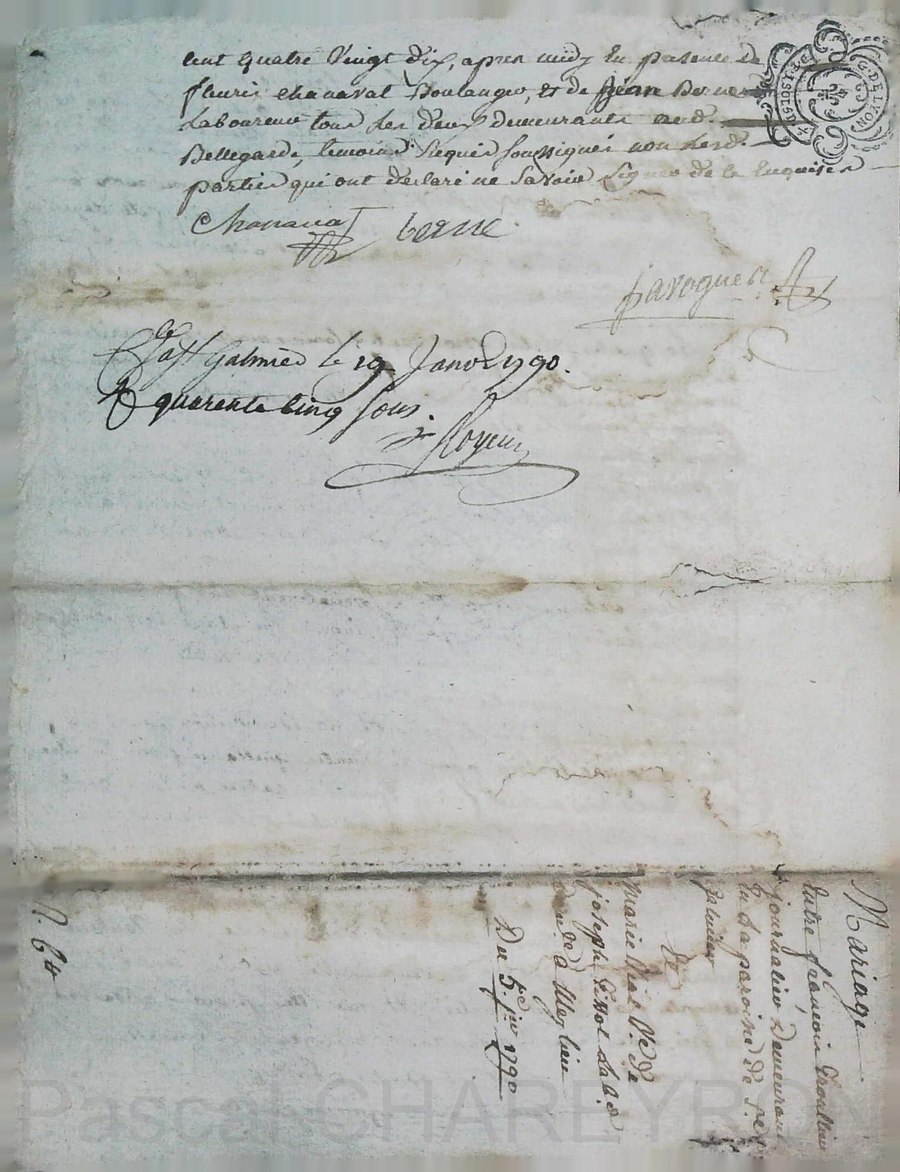 cent quatre Vingt dix, apres midy En presence de
fleurie chanavat Boulanger, et de jean Berne
Laboureur tous Les deux demeurants aud.
Bellegarde, temoins Requis soussignés non Lesd.
parties qui ont declaré ne Savoir Signer de ce Enquises
Chanavat berne
paroguer
Galmier le 19 Janv. 1790.
quarente cinq sous.
Royer
Mariage
Entre françois
journalier Demeurant
En La paroisse de St
&
marie Vial Ve de
joseph
Du 5e jer 1790
N. 64
G. DE LYON
Pascal CHAREYRON